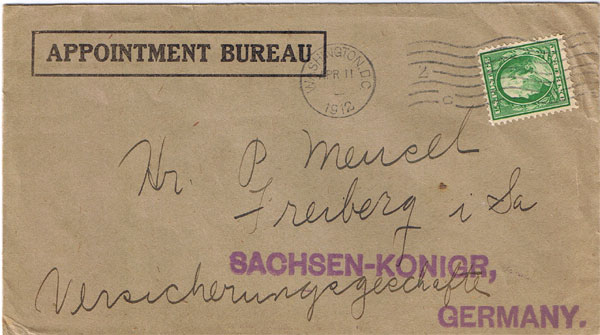 APPOINTMENT BUREAU
WASHINGTON, D.C.
APR 11
1912
2
C
Hr. P. Mensel
Freiberg i Sa
SACHSEN-KONIGR,
Versicherungsgeschäfte
GERMANY.